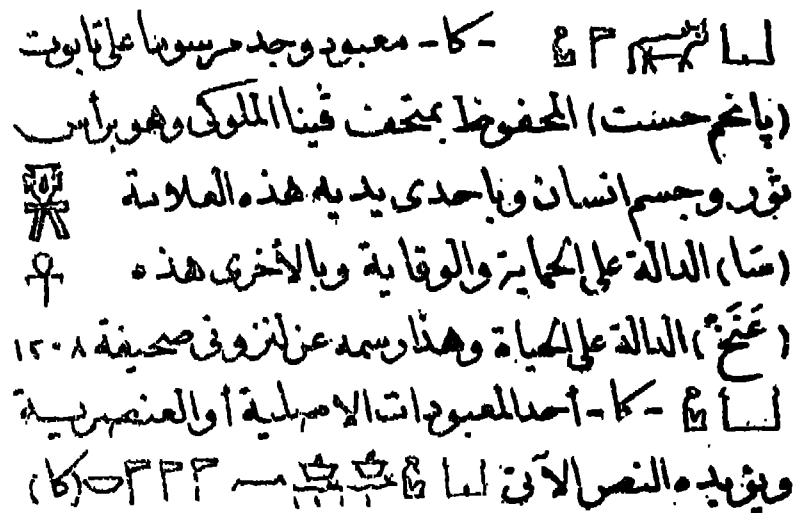 - كا - معبود وجد مرسوما على تابوت
(پانحم حست) المحفوظ بمتحف ڤينا الملوكى وهو برأس
ثور وجسم انسان وباحدى يديه هذه العلامة
(سَا) الدالة على الحماية والوقاية وبالأخرى هذه
(عَنَخْ) الدالة على الحياة وهذا رسمه عن لنزونى صحيفة ١٢٠٨
- كا - أحد المعبودات الاصلية أو العنصرية
ويؤيده النص الآتى (كا)